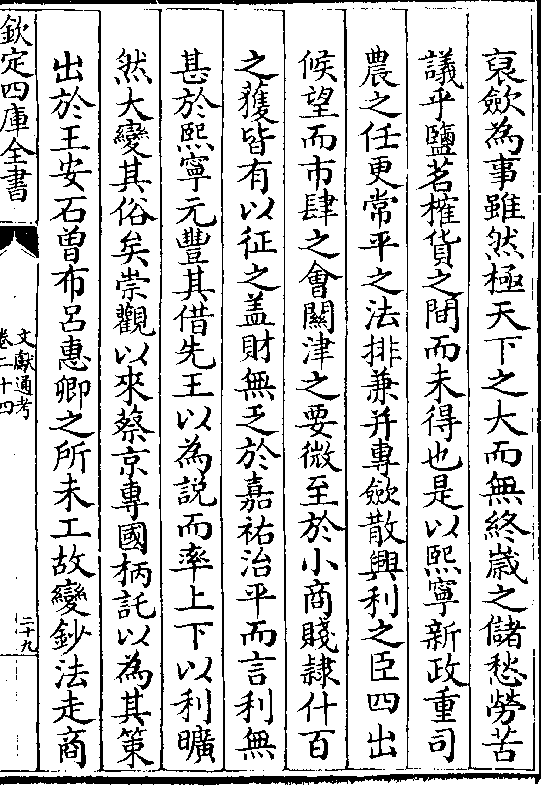 裒歛為事雖然極天下之大而無終歲之儲愁勞苦
議乎鹽茗榷貨之間而未得也是以熙寧新政重司
農之任更常平之法排兼并專歛散興利之臣四出
候望而市肆之會關津之要微至於小商賤隷什百
之獲皆有以征之盖財無乏於嘉祐治平而言利無
甚於熙寧元豐其借先王以為説而率上下以利曠
然大變其俗矣崇觀以來蔡京專國柄託以為其策
出於王安石曽布呂惠卿之所未工故變鈔法走商
欽定四庫全書
文獻通考
卷二十四
二十九